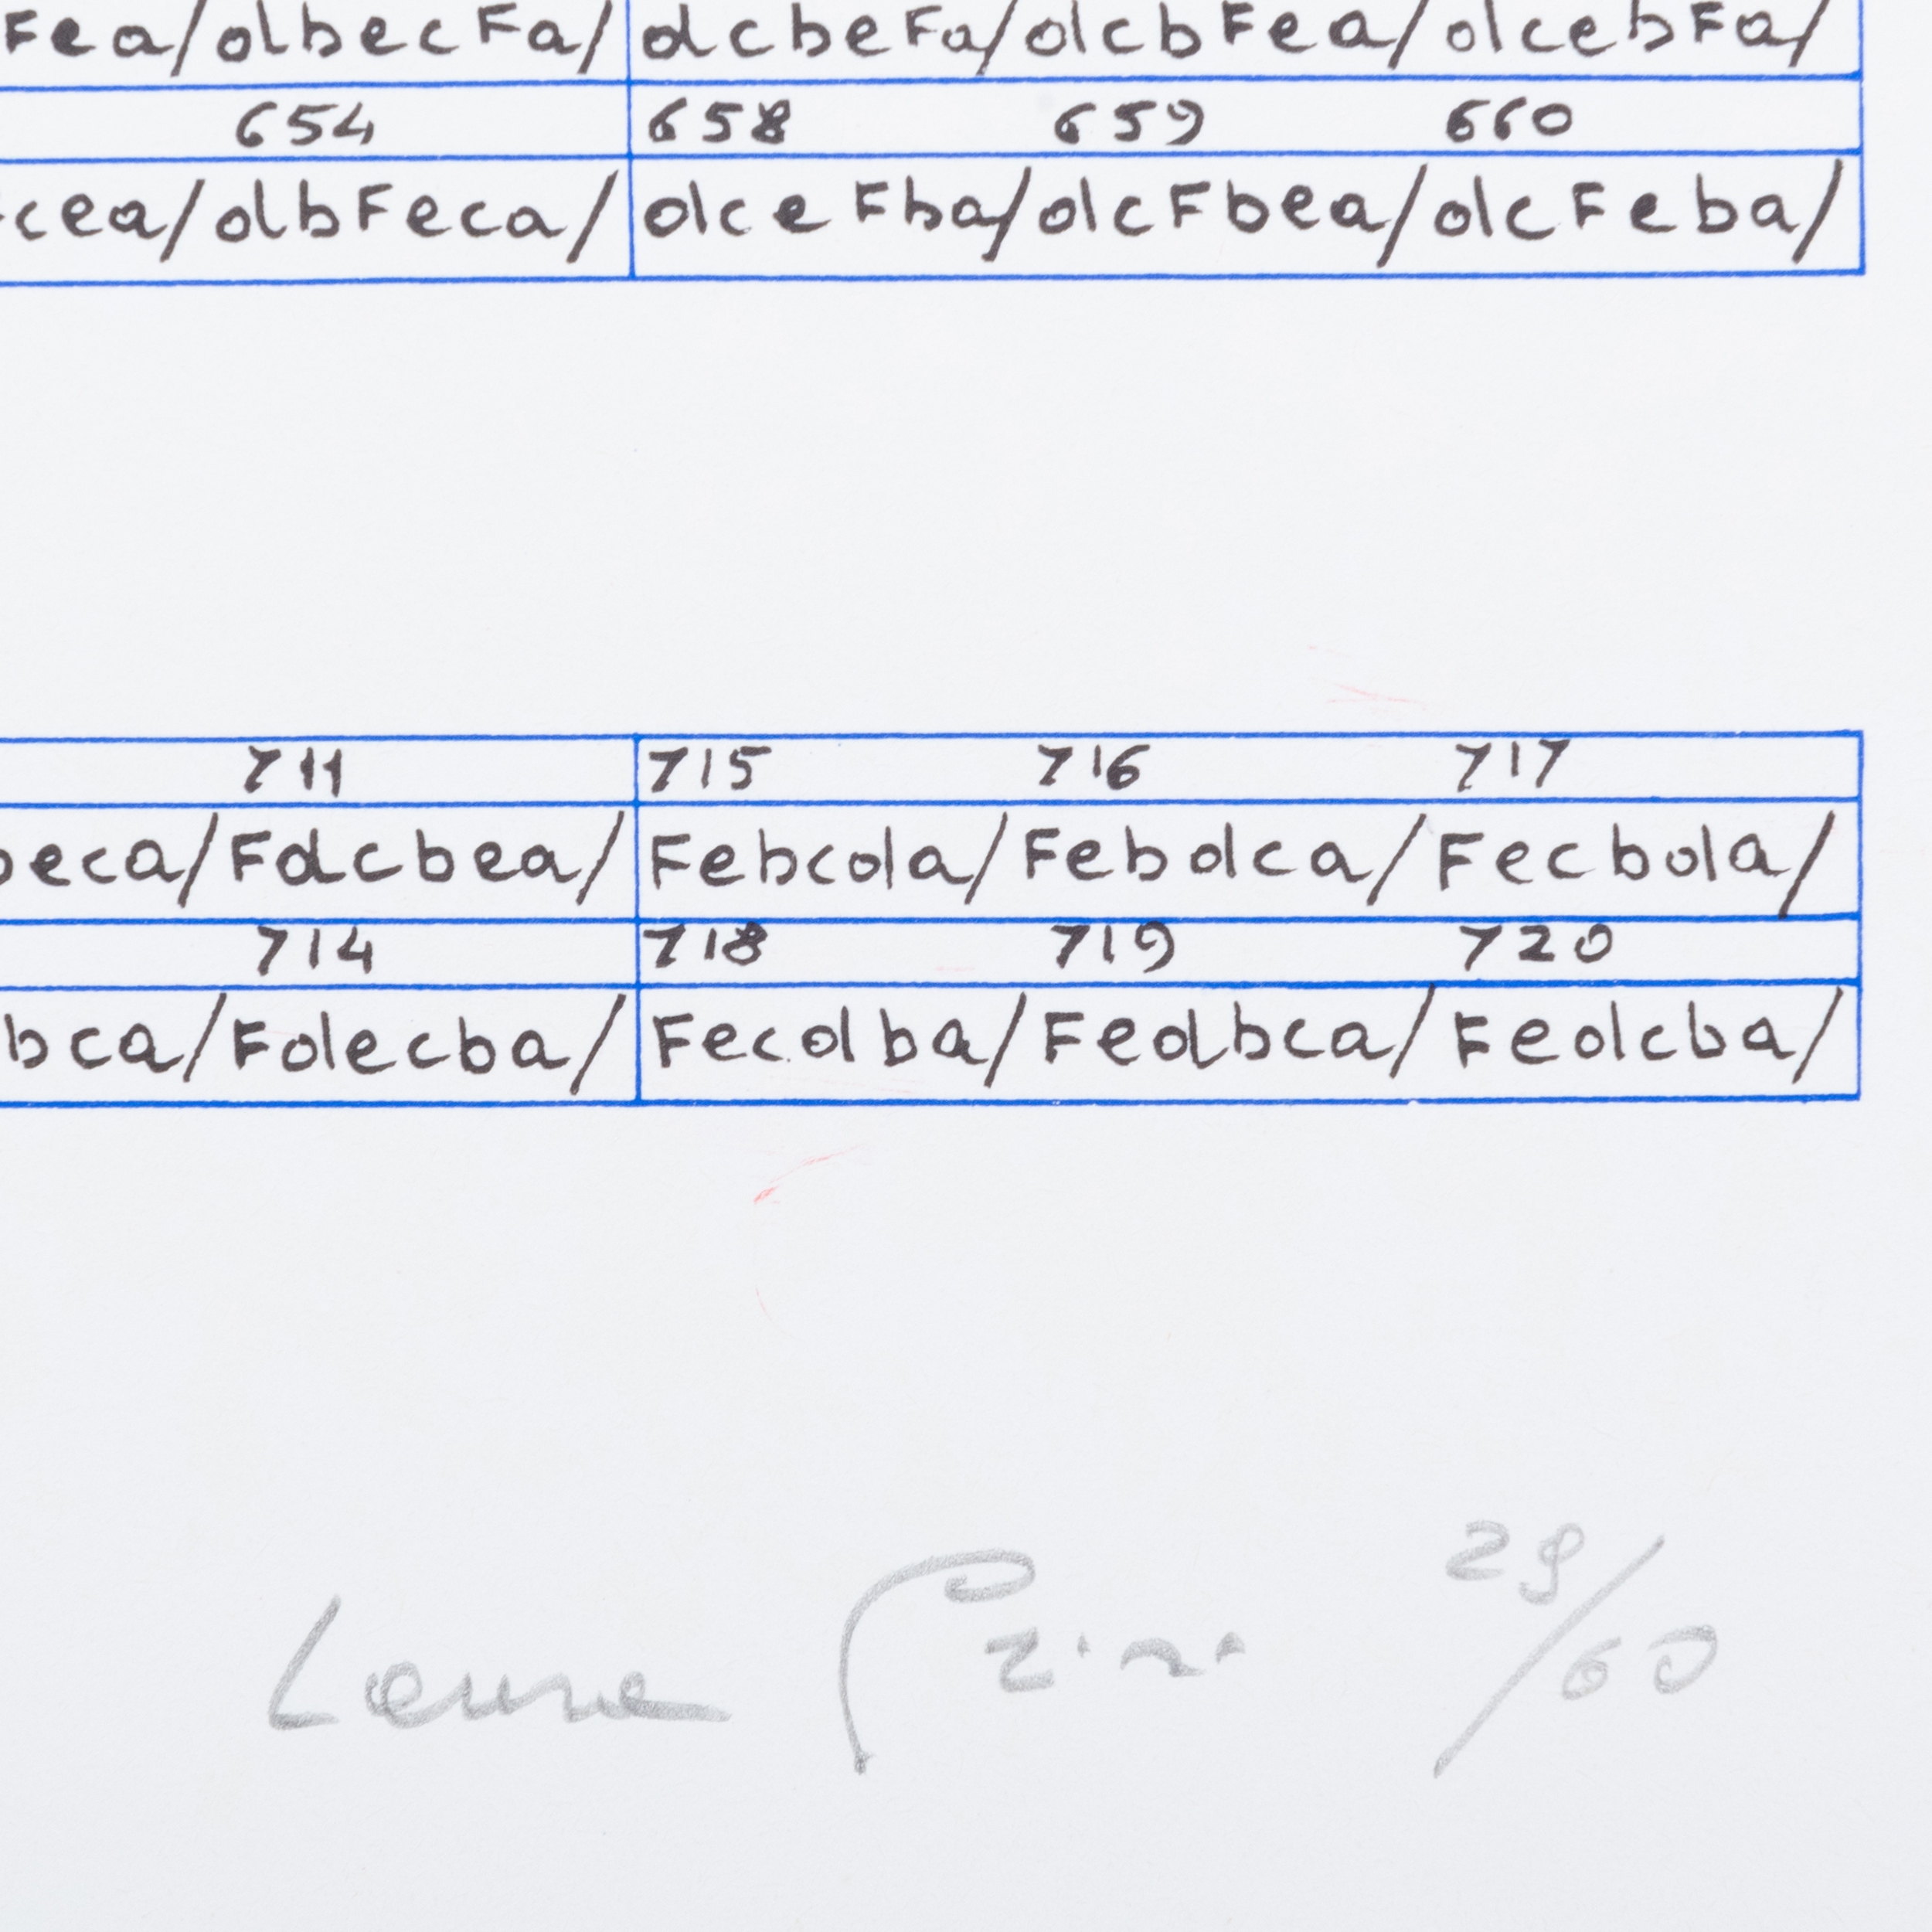 Fea/dbecFa/dcbeFa/dcbFea/dcebFa/
654 658 659 660
cea/dbFeca/dceFba/dcFbea/dcFeba/
711 715 716 717
beca/Fdcbea/Febcda/Febdca/Fecbda/
714 718 719 720
bca/Fdecba/Fecdba/Fedbca/Fedcba/
29/60